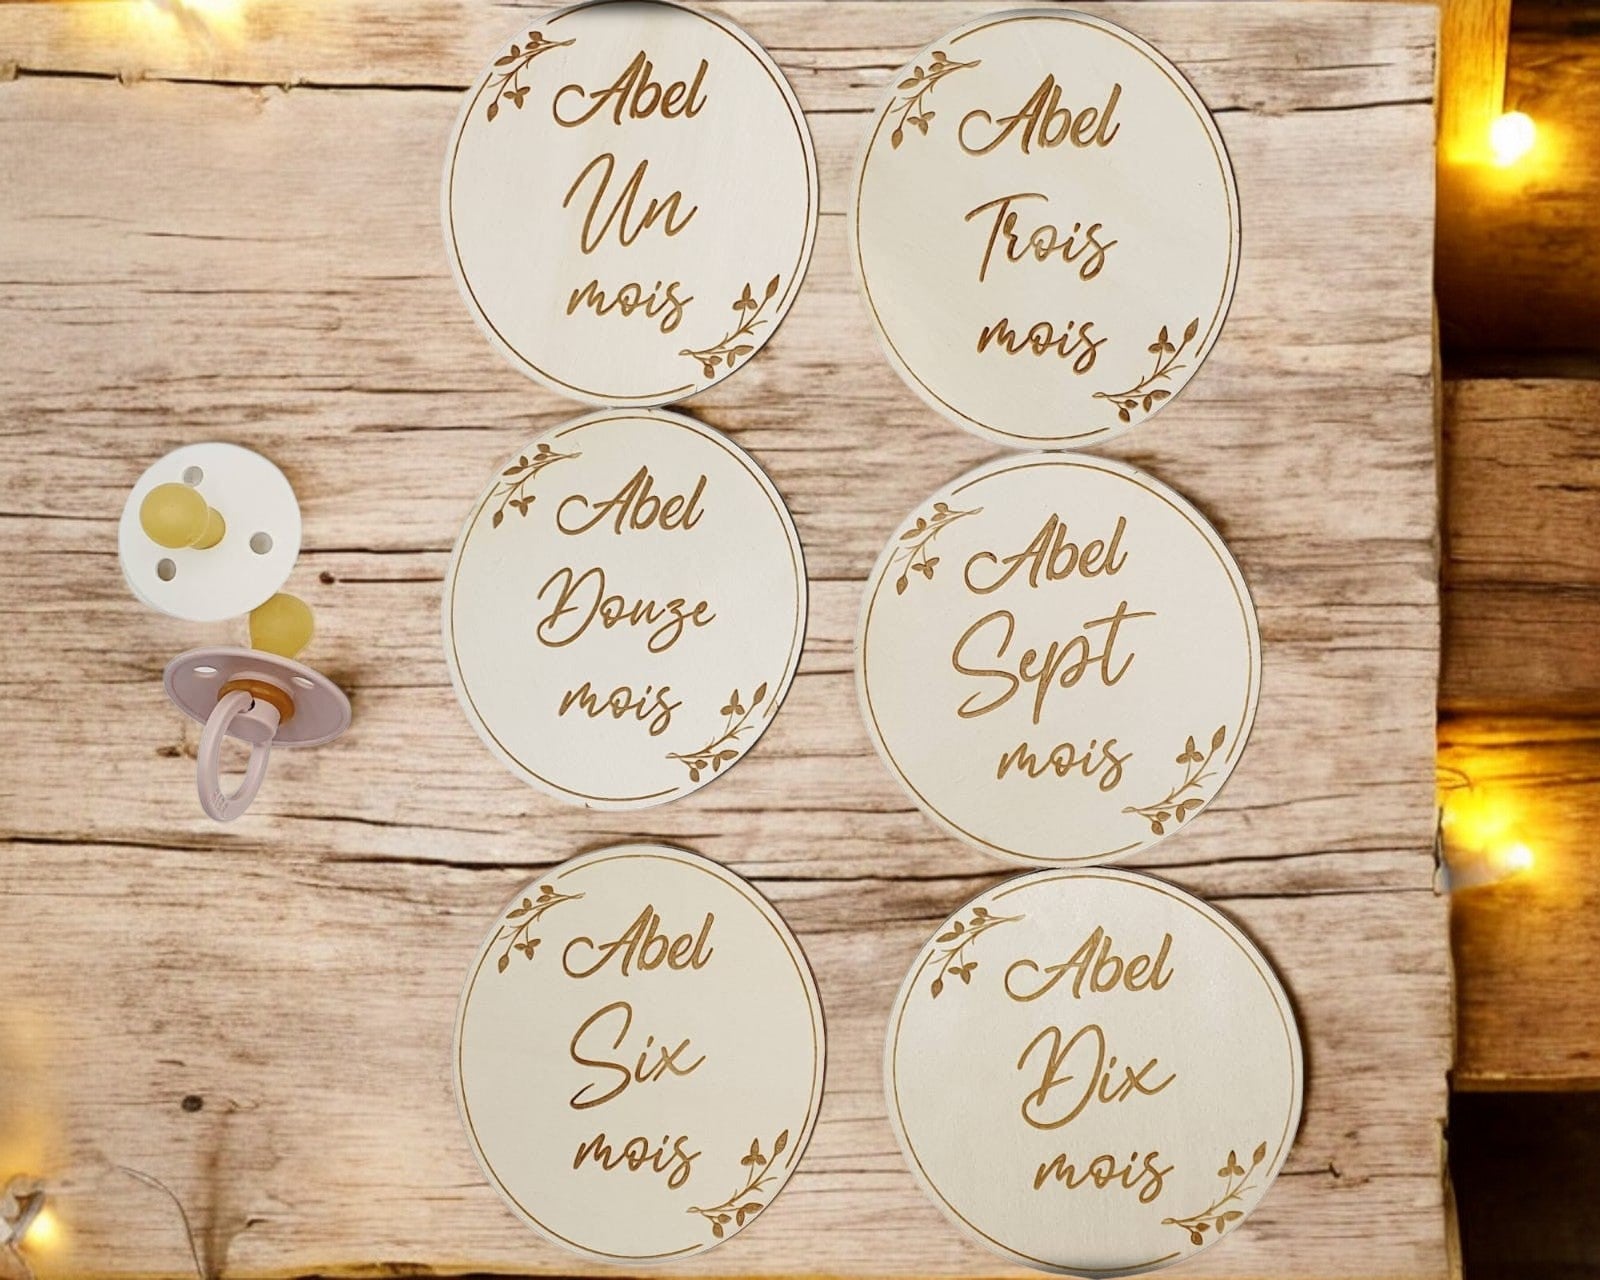 Abel
Un
mois
Abel
Trois
mois
Abel
Douze
mois
Abel
Sept
mois
Abel
Six
mois
Abel
Dix
mois